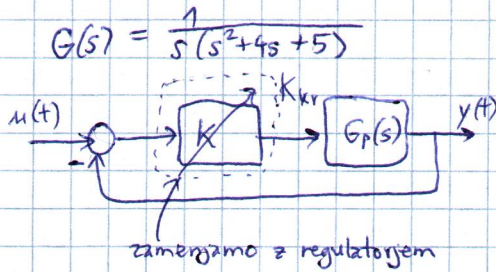 G(s) = 1 / s(s²+4s+5)
u(t) K K_kr G_p(s) y(t)
-
zamenjamo z regulatorjem